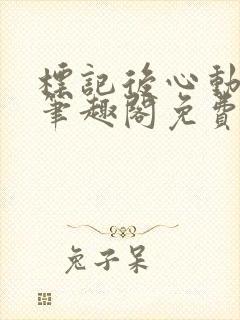 標記後心動
筆趣閣免費
兔子呆